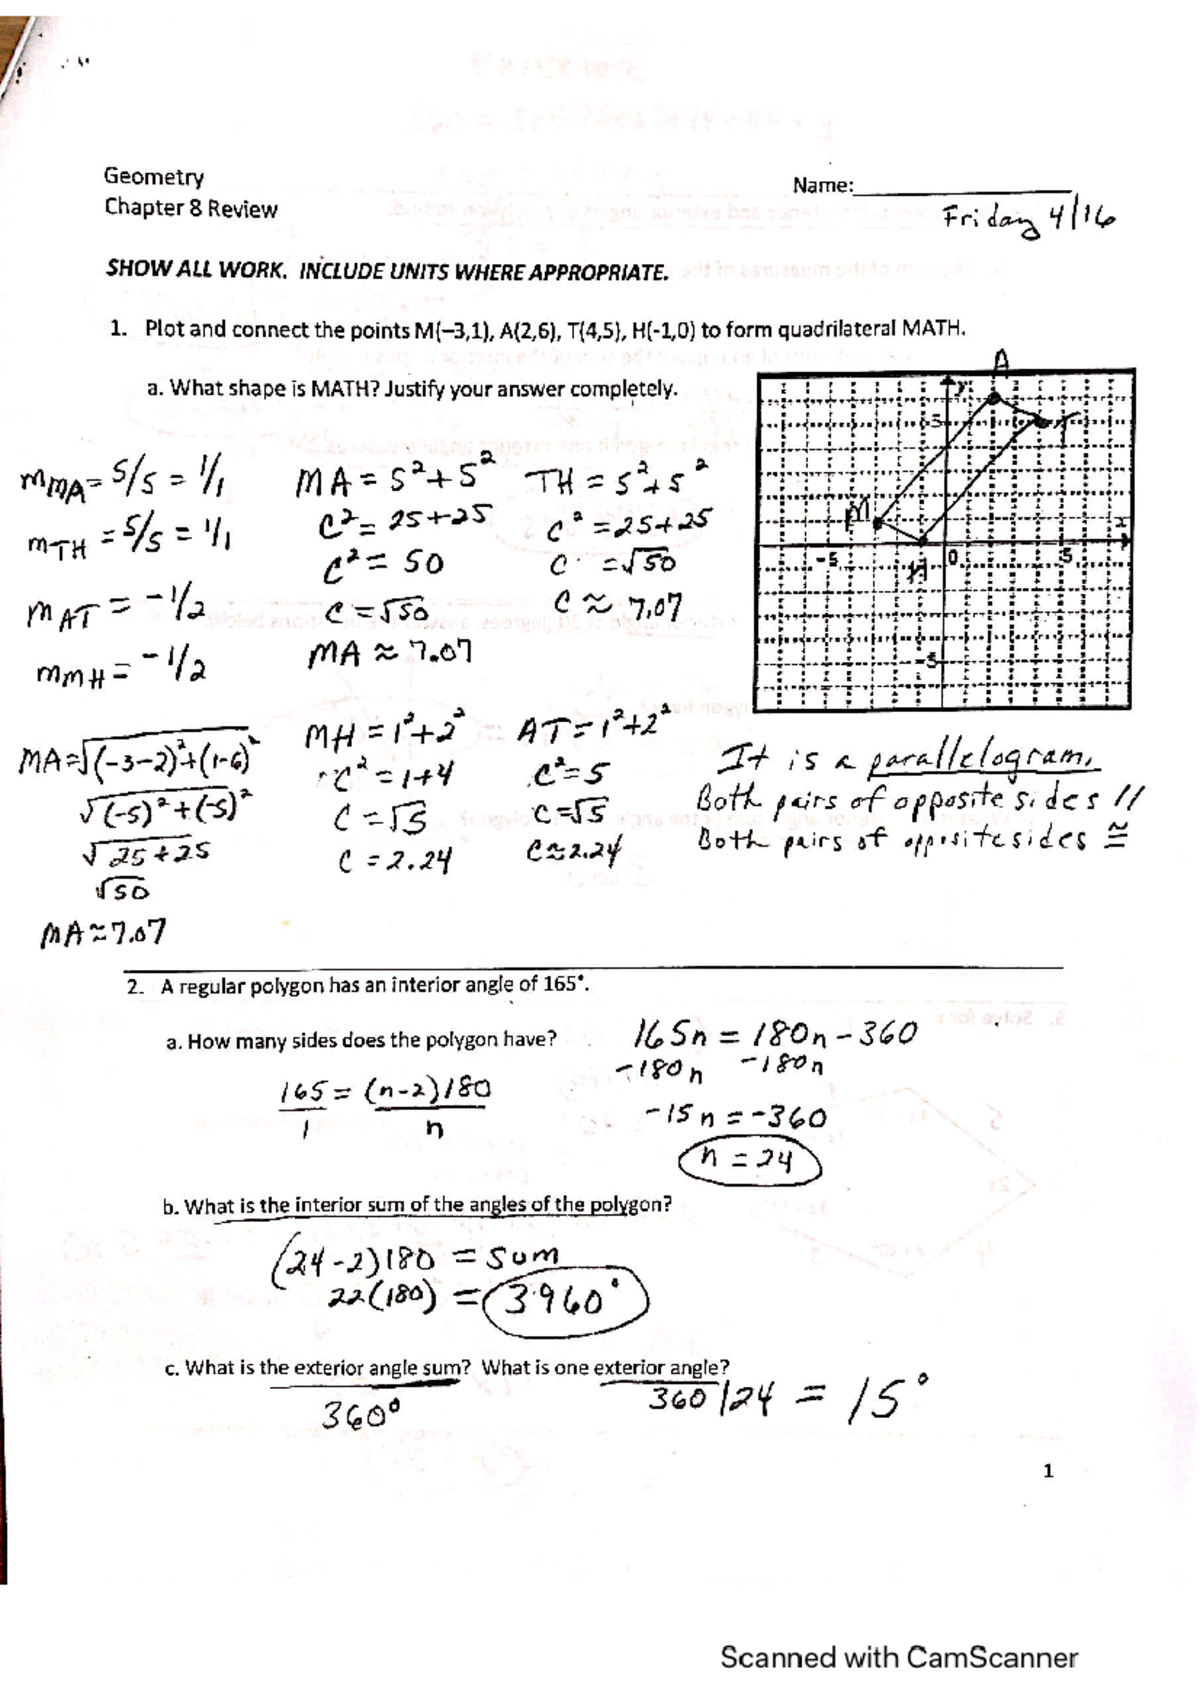 Geometry
Name:
Chapter 8 Review
Friday 4/16
SHOW ALL WORK. INCLUDE UNITS WHERE APPROPRIATE.
1. Plot and connect the points M(–3,1), A(2,6), T(4,5), H(-1,0) to form quadrilateral MATH.
a. What shape is MATH? Justify your answer completely.
A
y
5
M
T
x
-5
H
0
5
-5
mMA = 5/5 = 1/1
mTH = 5/5 = 1/1
mAT = -1/2
mMH = -1/2
MA = 5² + 5²
c² = 25 + 25
c² = 50
c = √50
MA ≈ 7.07
TH = 5² + 5²
c² = 25 + 25
c = √50
c ≈ 7.07
MA = √(-3-2)² + (1-6)²
√(-5)² + (-5)²
√25 + 25
√50
MA ≈ 7.07
MH = 1² + 2²
c² = 1 + 4
c = √5
c = 2.24
AT = 1² + 2²
c² = 5
c = √5
c ≈ 2.24
It is a parallelogram.
Both pairs of opposite sides //
Both pairs of opposite sides ≅
2. A regular polygon has an interior angle of 165°.
a. How many sides does the polygon have?
165/1 = (n-2)180/n
165n = 180n - 360
-180n -180n
-15n = -360
n = 24
b. What is the interior sum of the angles of the polygon?
(24-2)180 = sum
22(180) = 3960°
c. What is the exterior angle sum? What is one exterior angle?
360°
360/24 = 15°
1
Scanned with CamScanner